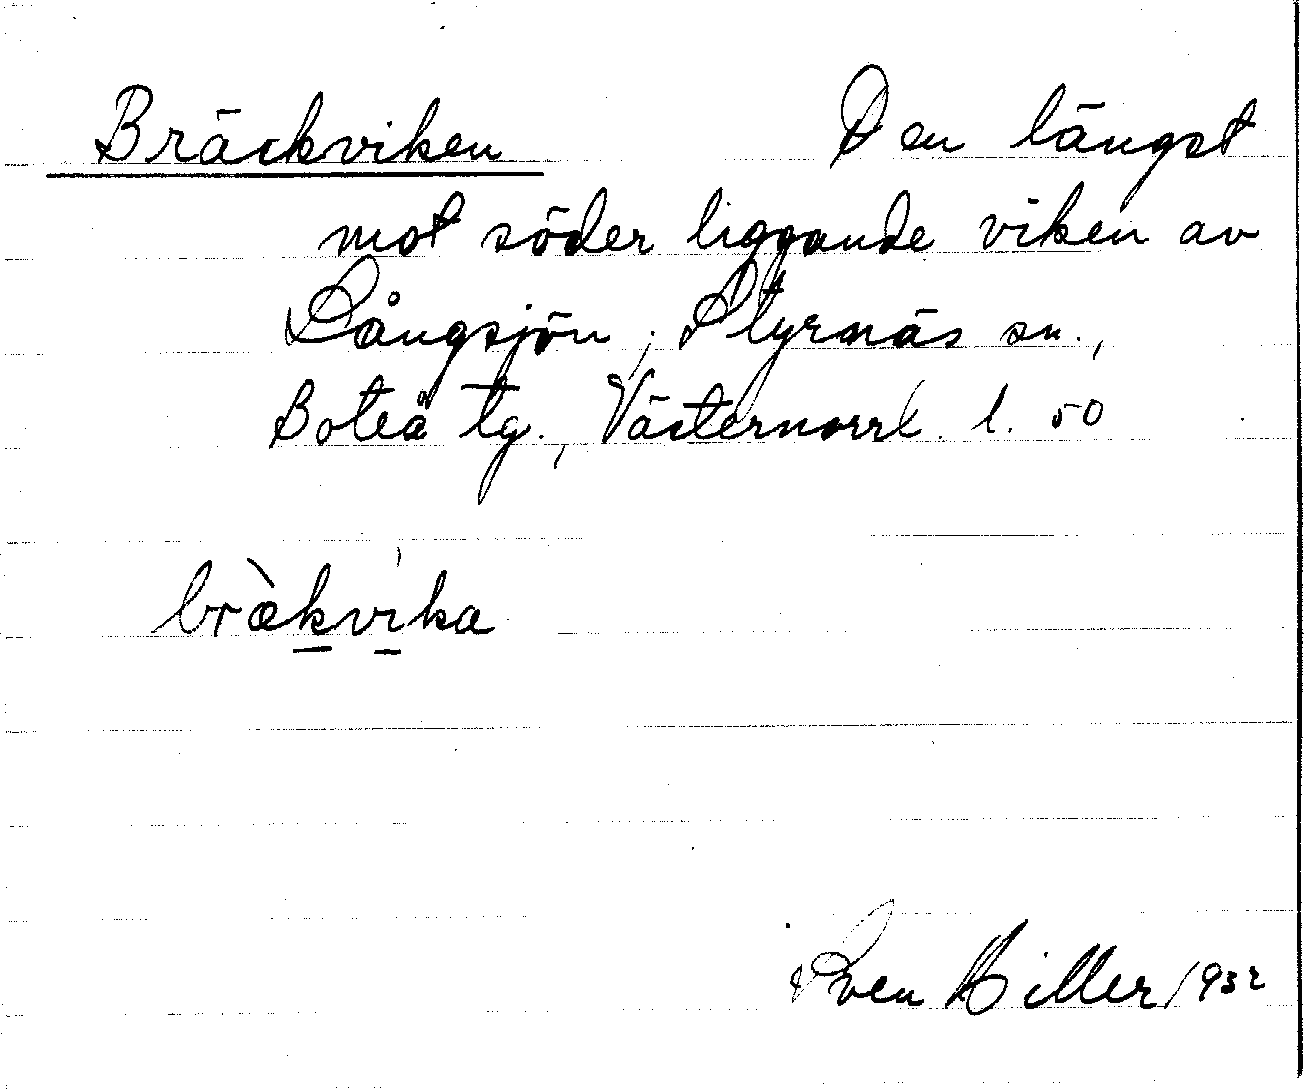 Bräckviken Den längst
mot söder liggande viken av
Långsjön, Styrnäs sn.,
Boteå tg., Västernorrl. l. 50
bràkvika
Sven Hiller 1932